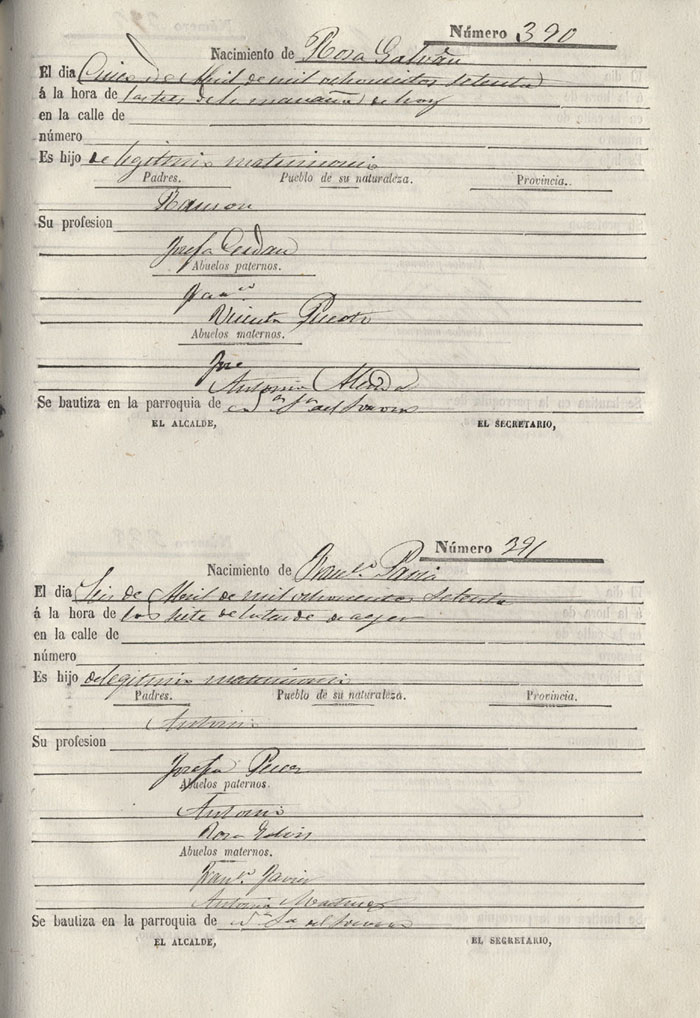 Número 390
Nacimiento de Rosa Galvañ
El dia Cinco de Abril de mil ochocientos setenta
á la hora de las tres de la mañana de hoy
en la calle de
número
Es hijo de legitimo matrimonio
Padres. Pueblo de su naturaleza. Provincia.
Ramon
Su profesion
Josefa
Abuelos paternos.
Vicenta
Abuelos maternos.
José
Antonia
Se bautiza en la parroquia de
EL ALCALDE, EL SECRETARIO,
Número 391
Nacimiento de
El dia Seis de Abril de mil ochocientos setenta
á la hora de las siete de la tarde de ayer
en la calle de
número
Es hijo de legitimo matrimonio
Padres. Pueblo de su naturaleza. Provincia.
Antonio
Su profesion
Josefa Perez
Abuelos paternos.
Antonio
Rosa
Abuelos maternos.
Franco. Javier
Antonia Martinez
Se bautiza en la parroquia de
EL ALCALDE, EL SECRETARIO,